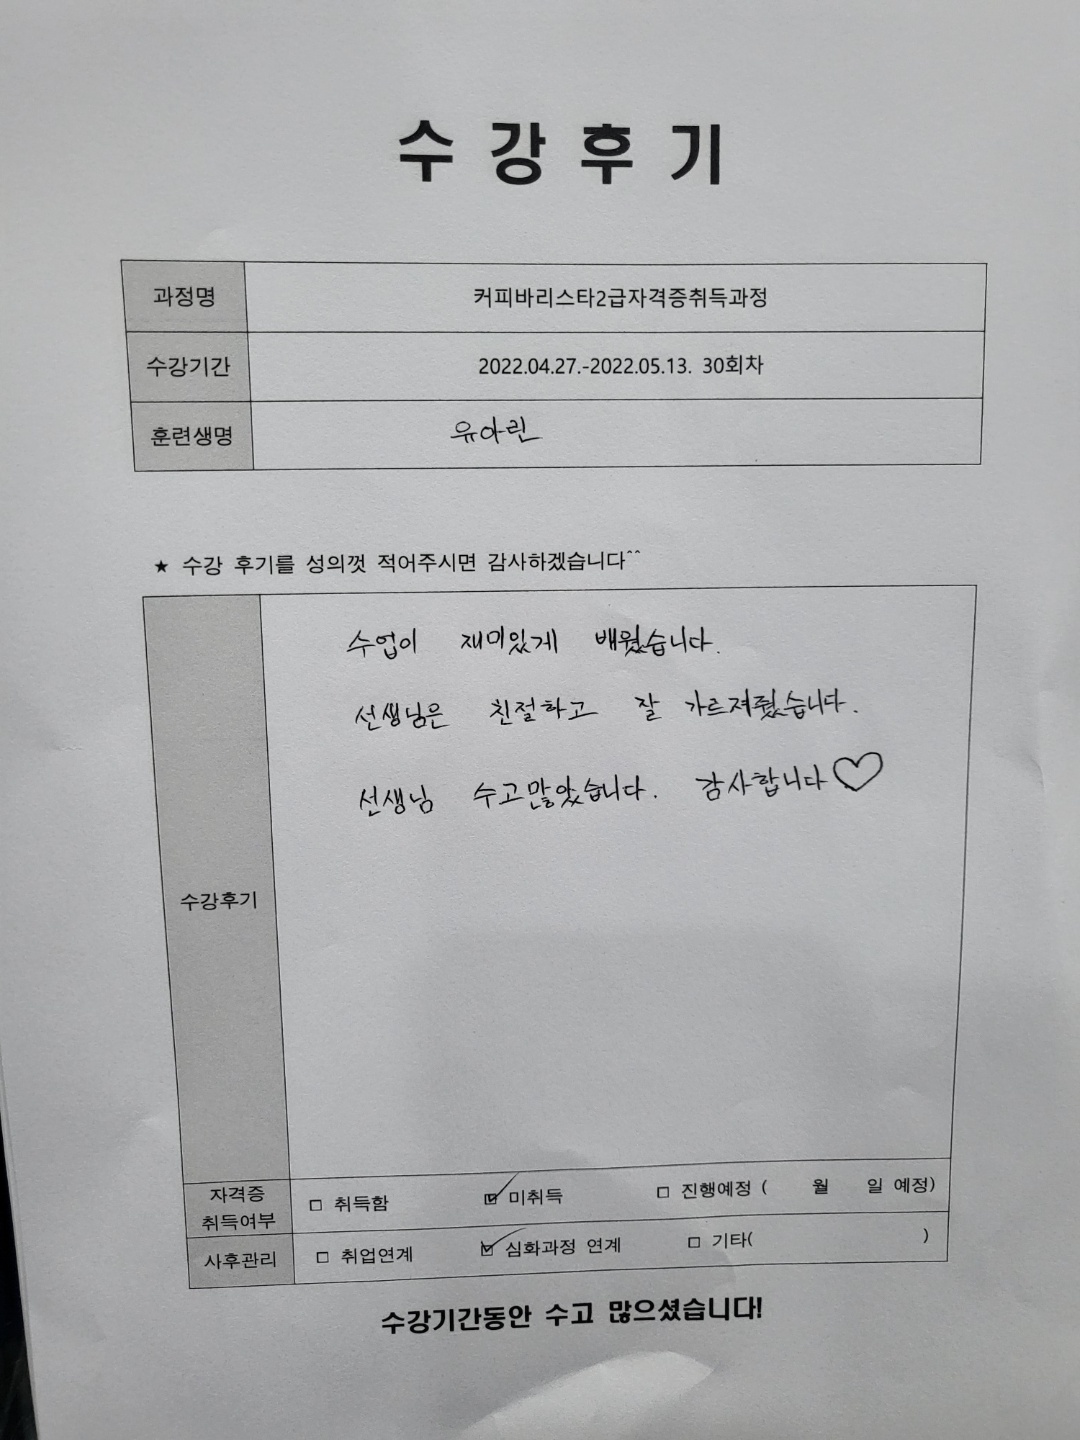 수 강 후 기
과정명 커피바리스타2급자격증취득과정
수강기간 2022.04.27.-2022.05.13. 30회차
훈련생명 유아린
★ 수강 후기를 성의껏 적어주시면 감사하겠습니다^^
수업이 재미있게 배웠습니다.
선생님은 친절하고 잘 가르져줬습니다.
선생님 수고많았습니다. 감사합니다♡
수강후기
자격증 취득여부 □ 취득함 ☑ 미취득 □ 진행예정 ( 월 일 예정)
사후관리 □ 취업연계 ☑ 심화과정 연계 □ 기타( )
수강기간동안 수고 많으셨습니다!